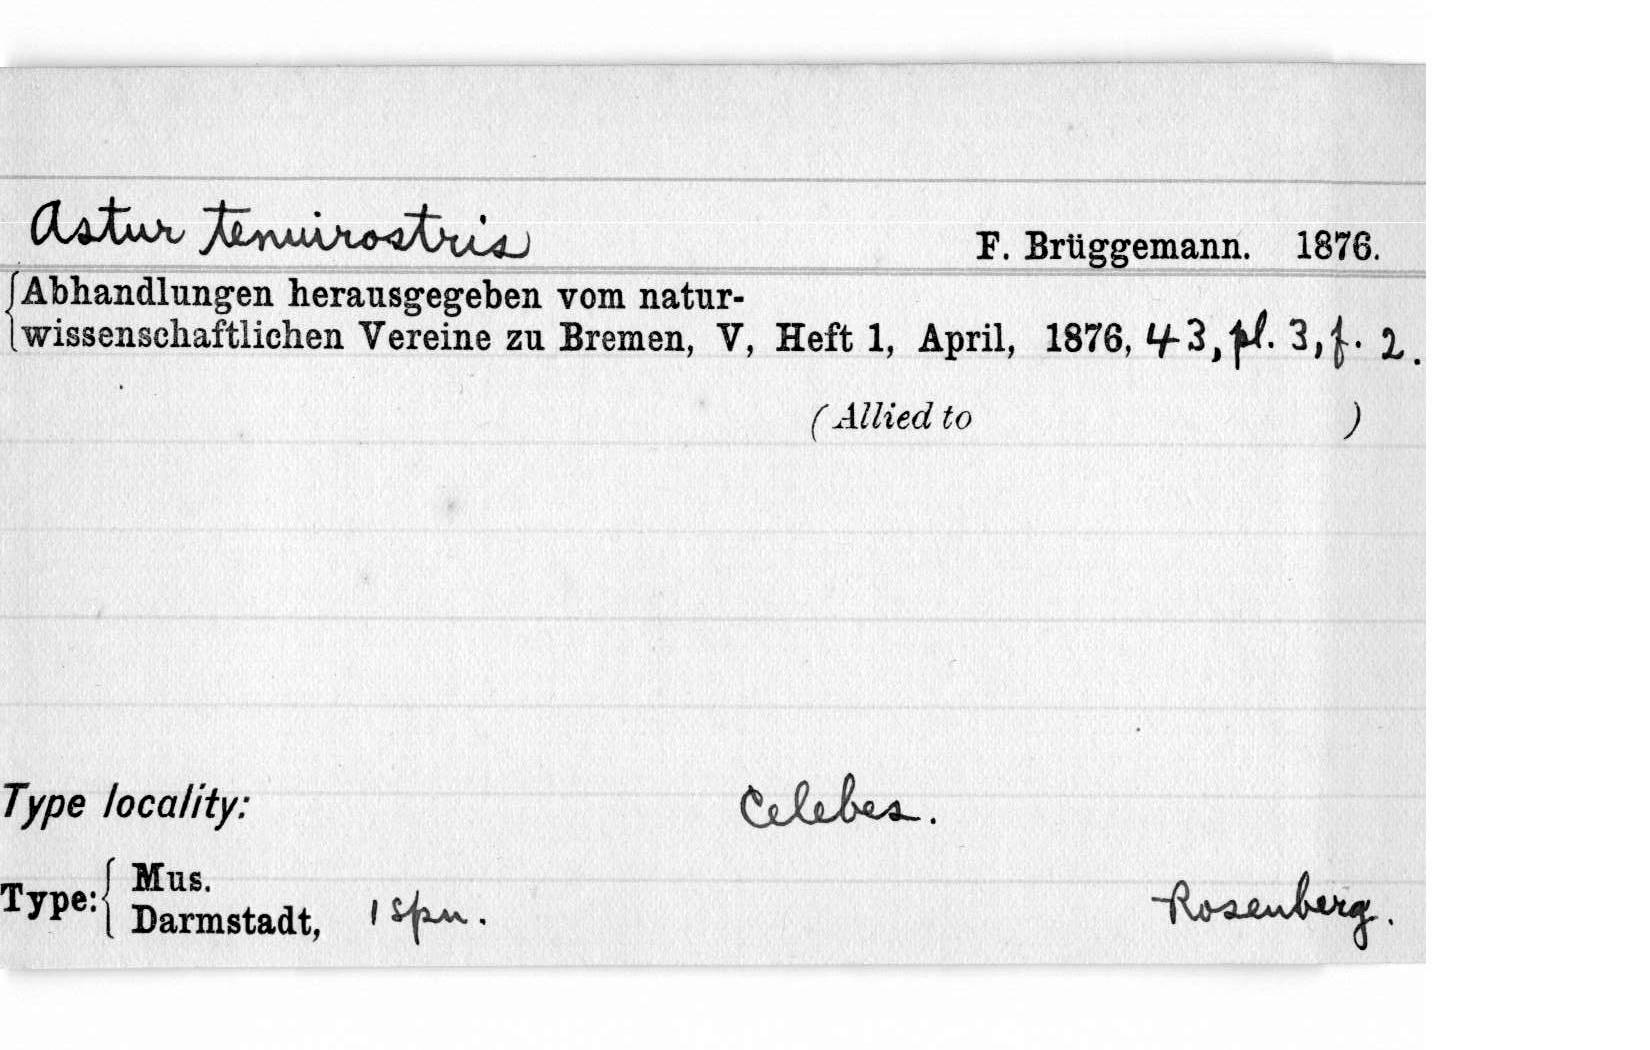 Astur tenuirostris F. Brüggemann. 1876.
Abhandlungen herausgegeben vom natur-
wissenschaftlichen Vereine zu Bremen, V, Heft 1, April, 1876, 43, pl. 3, f. 2.
(Allied to )
Type locality: Celebes.
Type: Mus.
Darmstadt, 1 spn. Rosenberg.